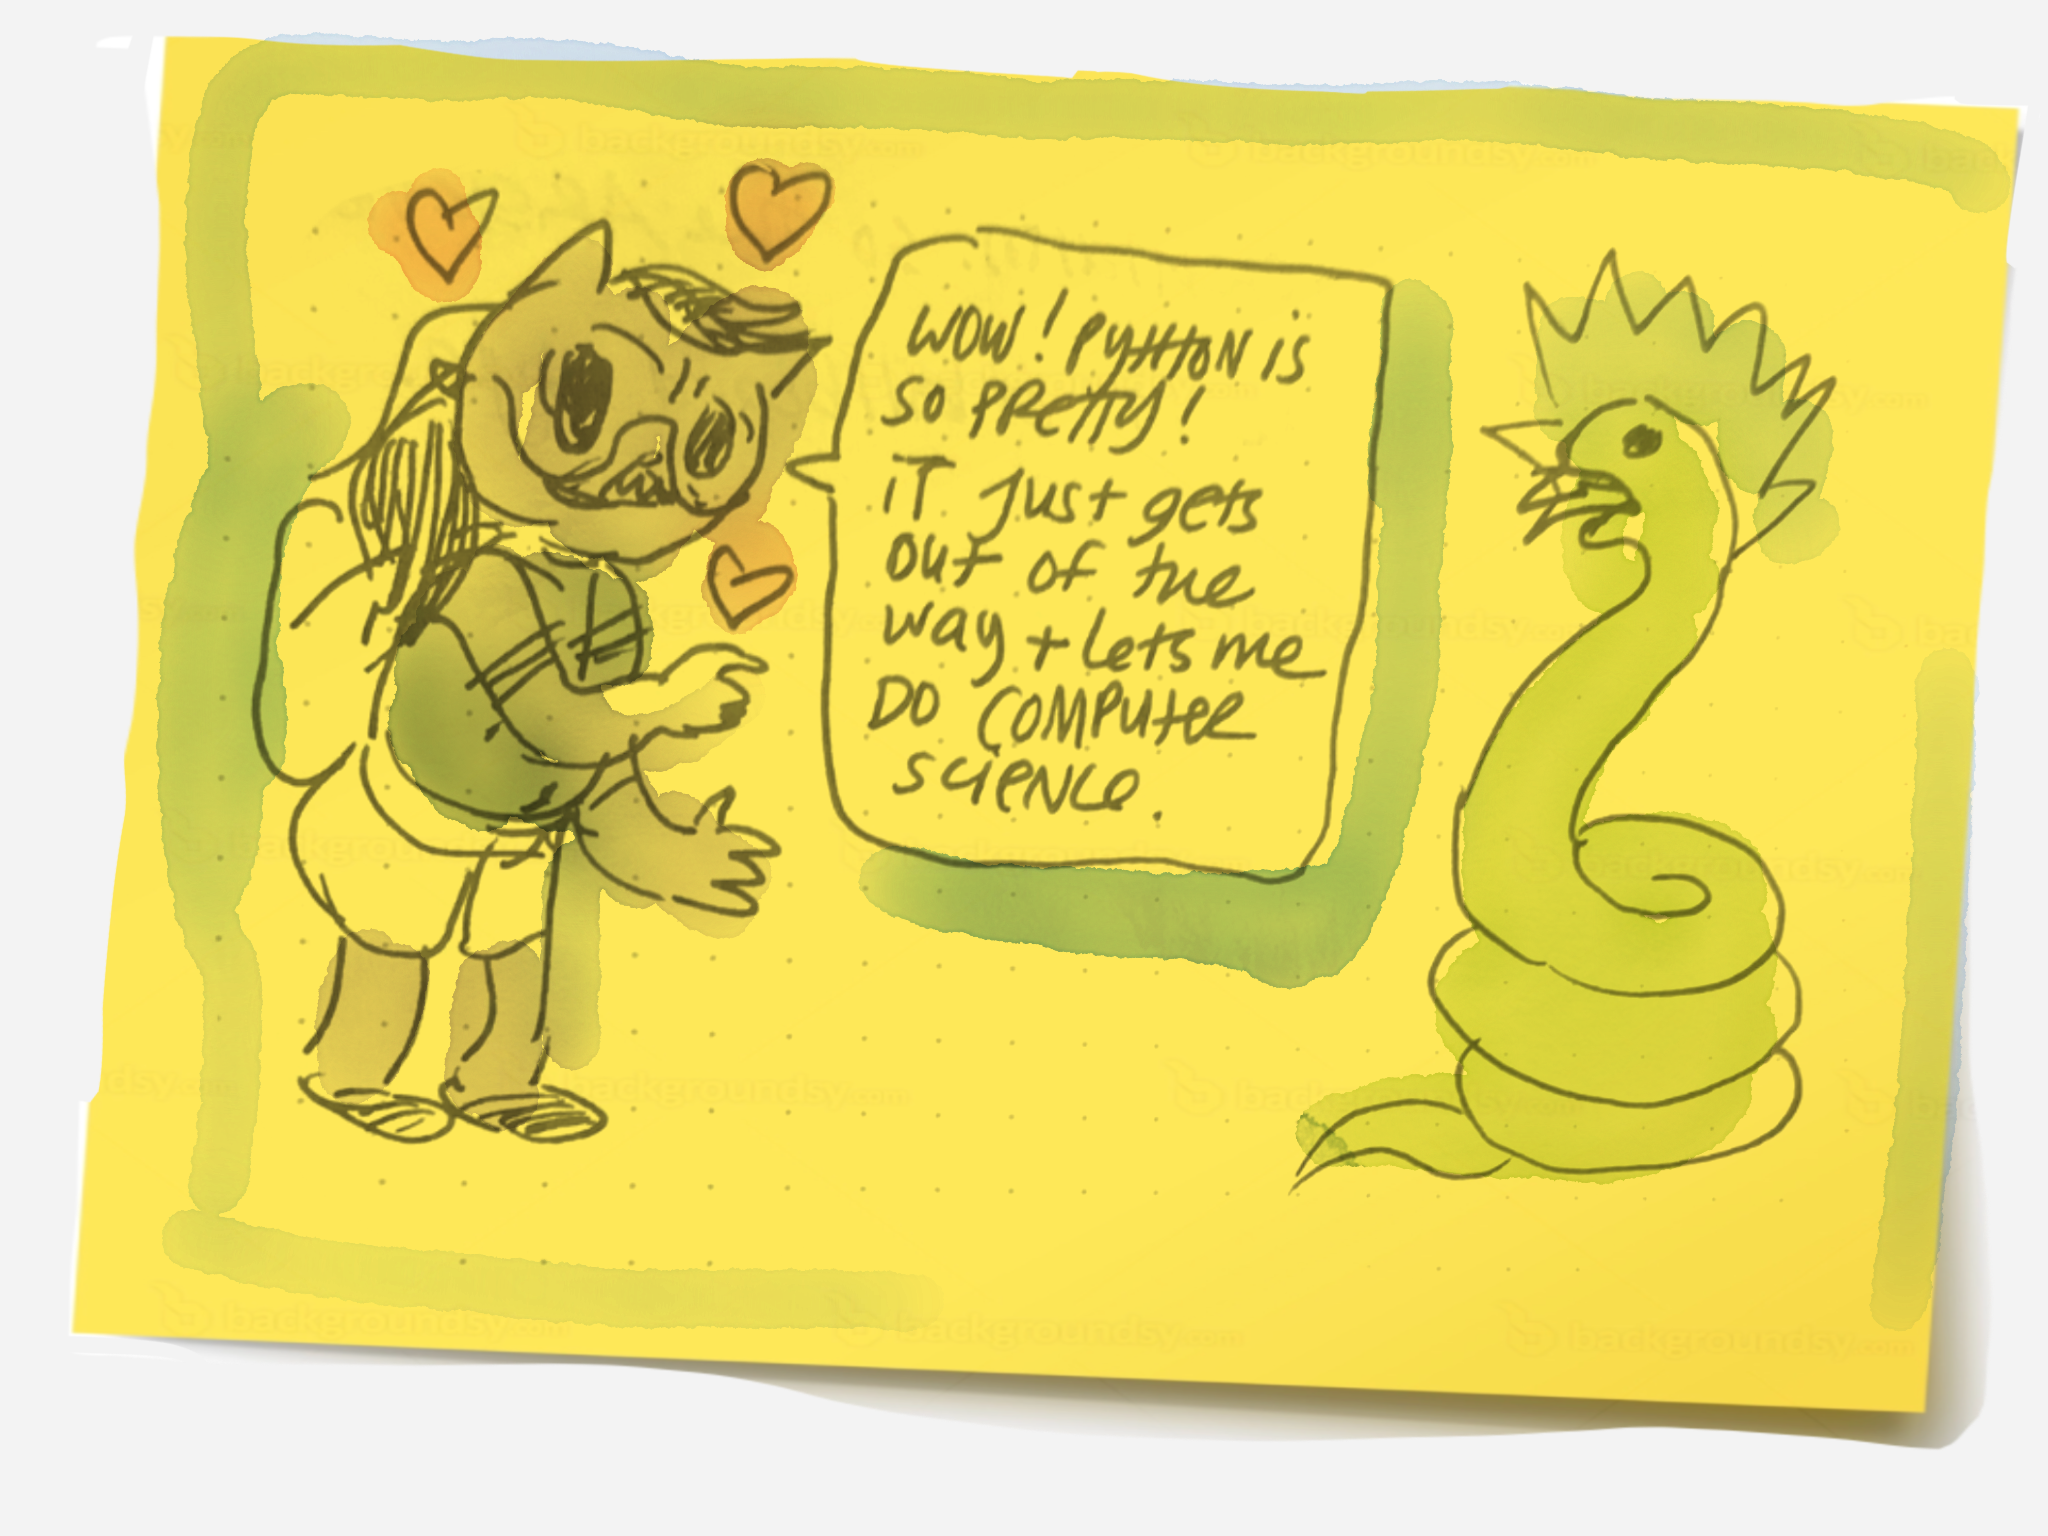 WOW! PYTHON IS
SO PRETTY!
IT JUST gets
OUT OF THE
WAY + Lets me
DO COMPUTER
SCIENCE.
backgroundsy.com